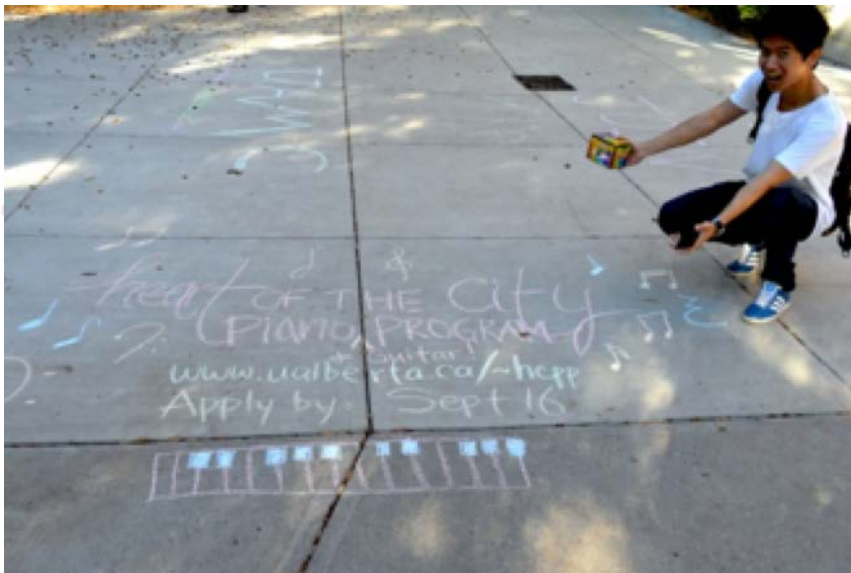 heart OF THE City
PIANO PROGRAM
+ Guitar!
www.ualberta.ca/~hcpp
Apply by: Sept 16